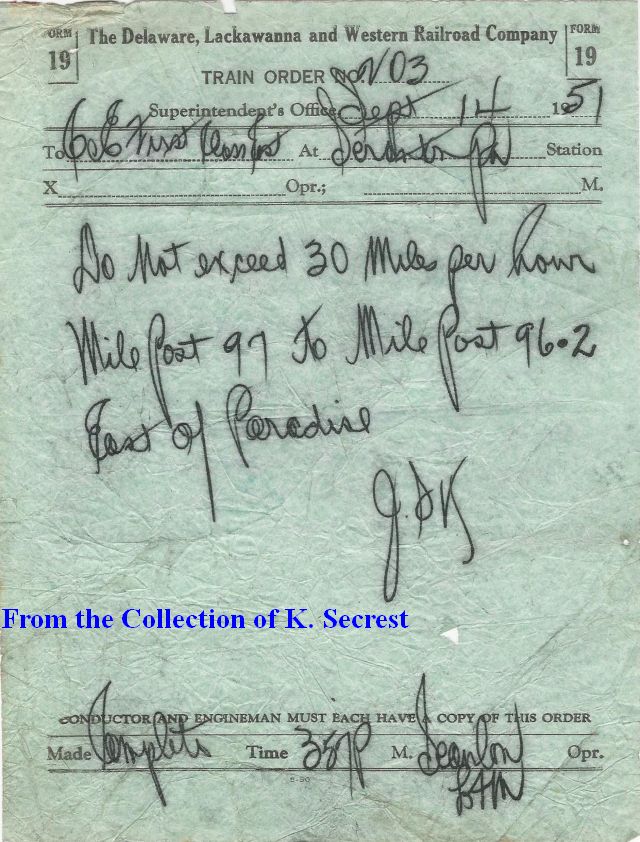 FORM 19 The Delaware, Lackawanna and Western Railroad Company FORM 19
TRAIN ORDER NO. 703
Superintendent's Office Sept 14 1951
To C&E First Class East At Scranton Pa Station
X Opr.; M.
Do Not exceed 30 Miles per hour
Mile Post 97 to Mile Post 96.2
East of Paradise
J.
From the Collection of K. Secrest
CONDUCTOR AND ENGINEMAN MUST EACH HAVE A COPY OF THIS ORDER
Made Complete Time 357P M. Scanlon Opr.